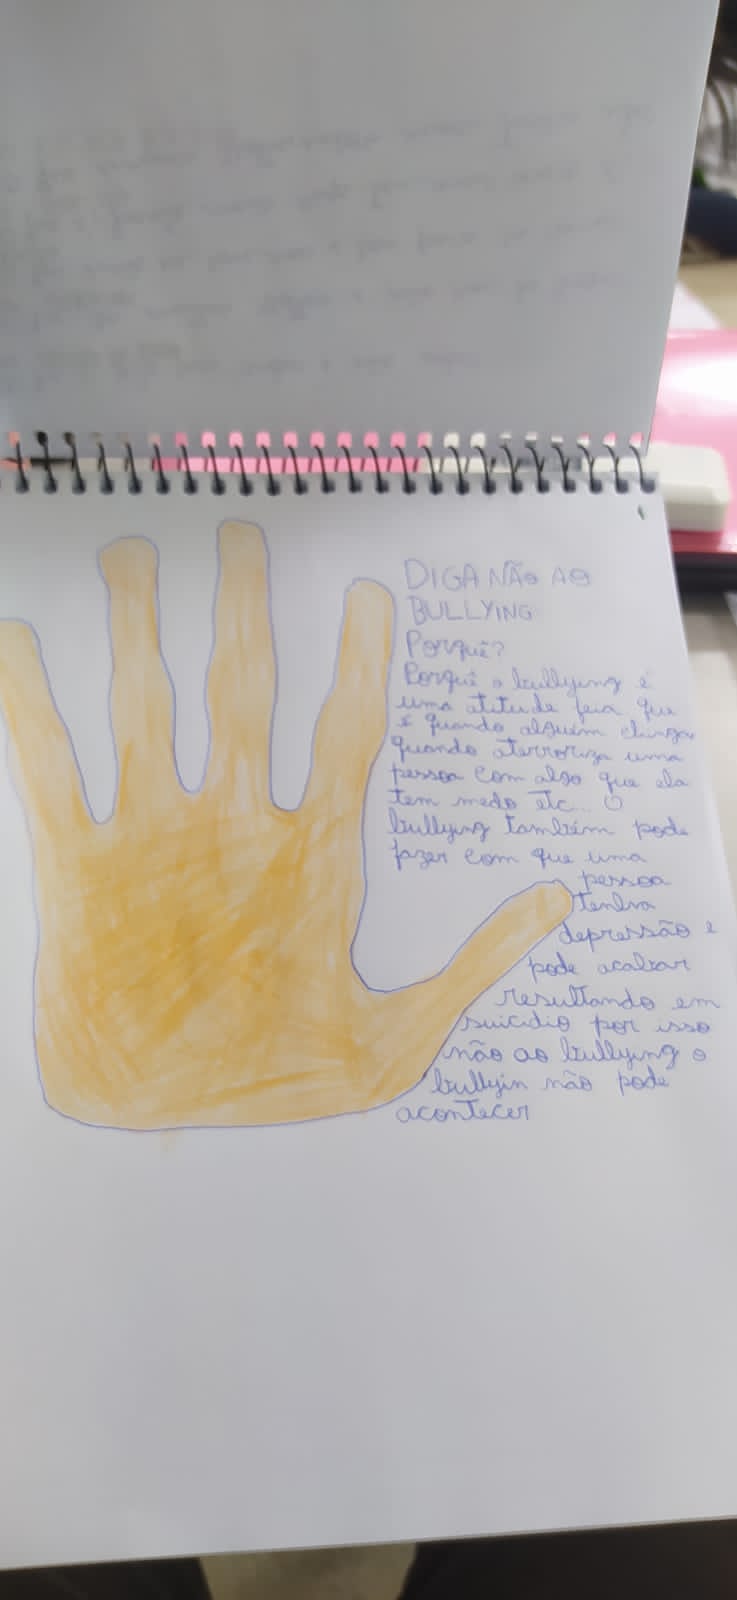 DIGA NÃO AO
BULLYING
Porquê?
Porquê o bullying é
uma atitude feia que
é quando alguém chinga,
quando aterroriza uma
pessoa com algo que ela
tem medo etc... O
bullying também pode
fazer com que uma
pessoa
tenha
depressão e
pode acabar
resultando em
suicidio por isso
não ao bullying o
bullyin não pode
acontecer